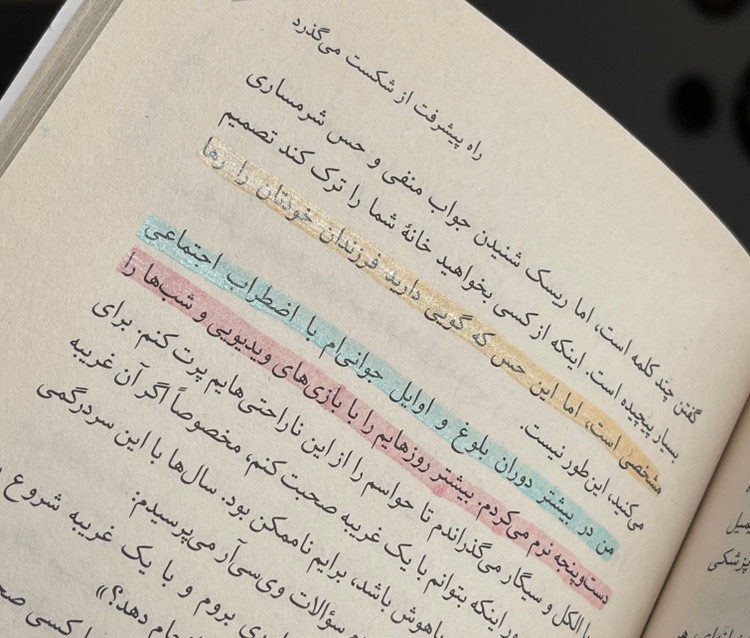 راه پیشرفت از شکست می‌گذرد
گفتن چند کلمه است، اما ریسک شنیدن جواب منفی و حس شرمساری
بسیار پیچیده است. اینکه از کسی بخواهید خانهٔ شما را ترک کند تصمیم
مشخصی است، اما این حس که گویی دارید فرزندان خودتان را رها
می‌کنید، این‌طور نیست.
من در بیشتر دوران بلوغ و اوایل جوانی‌ام با اضطراب اجتماعی
دست‌وپنجه نرم می‌کردم. بیشتر روزهایم را با بازی‌های ویدیویی و شب‌ها را
با الکل و سیگار می‌گذراندم تا حواسم را از این ناراحتی‌هایم پرت کنم. برای
اینکه بتوانم با یک غریبه صحبت کنم، مخصوصاً اگر آن غریبه
باهوش باشد، برایم ناممکن بود. سال‌ها با این سردرگمی
سؤالات وی‌سی‌آر می‌پرسیدم:
بروم و با یک غریبه شروع
انجام دهد؟»
کسی
یمیل
پزشکی